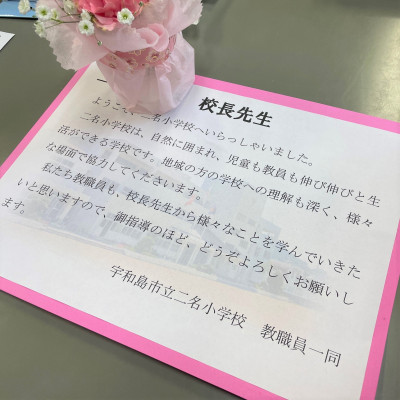 校長先生
ようこそ、二名小学校へいらっしゃいました。
二名小学校は、自然に囲まれ、児童も教員も伸び伸びと生
活ができる学校です。地域の方の学校への理解も深く、様々
な場面で協力してくださいます。
私たち教職員も、校長先生から様々なことを学んでいきた
いと思いますので、御指導のほど、どうぞよろしくお願いし
ます。
宇和島市立二名小学校 教職員一同